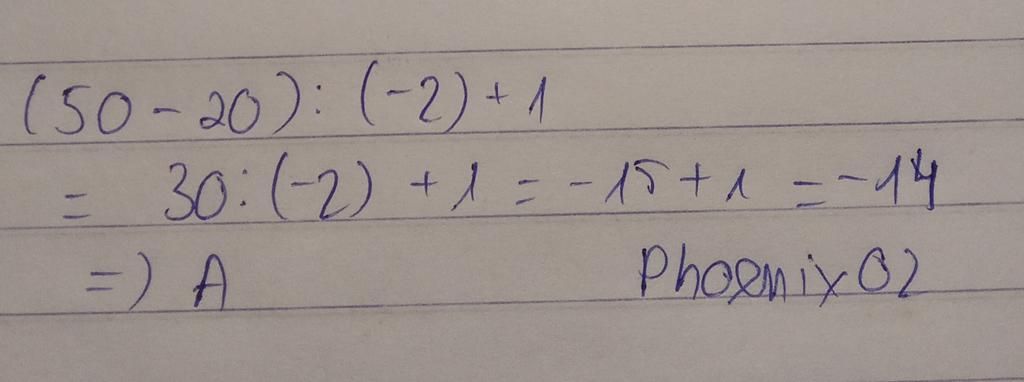 (50-20):(-2)+1
= 30:(-2) +1 = -15+1 = -14
=) A Phoenix02